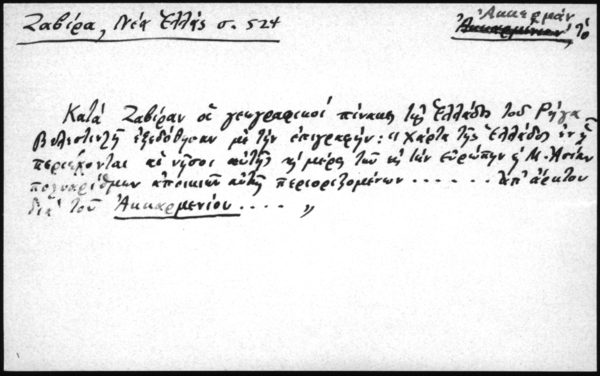 Ζαβίρα, Νέα Ἑλλάς σ. 524
Ἀκκερμάν
Ἀκκαρμένιον, τὸ
Κατὰ Ζαβίραν οἱ γεωγραφικοὶ πίνακες τῆς Ἑλλάδος τοῦ Ρήγα
Βελεστινλῆ ἐξεδόθησαν μὲ τὴν ἐπιγραφήν: "Χάρτα τῆς Ἑλλάδος ἐν ᾗ
περιέχονται αἱ νῆσοι αὐτῆς καὶ μέρος τῶν εἰς τὴν Εὐρώπην καὶ Μ. Ἀσίαν
πολυαρίθμων ἀποικιῶν αὐτῆς περιοριζομένων ...... ἀπ' ἄρκτου
διὰ τοῦ Ἀκκαρμενίου .... "